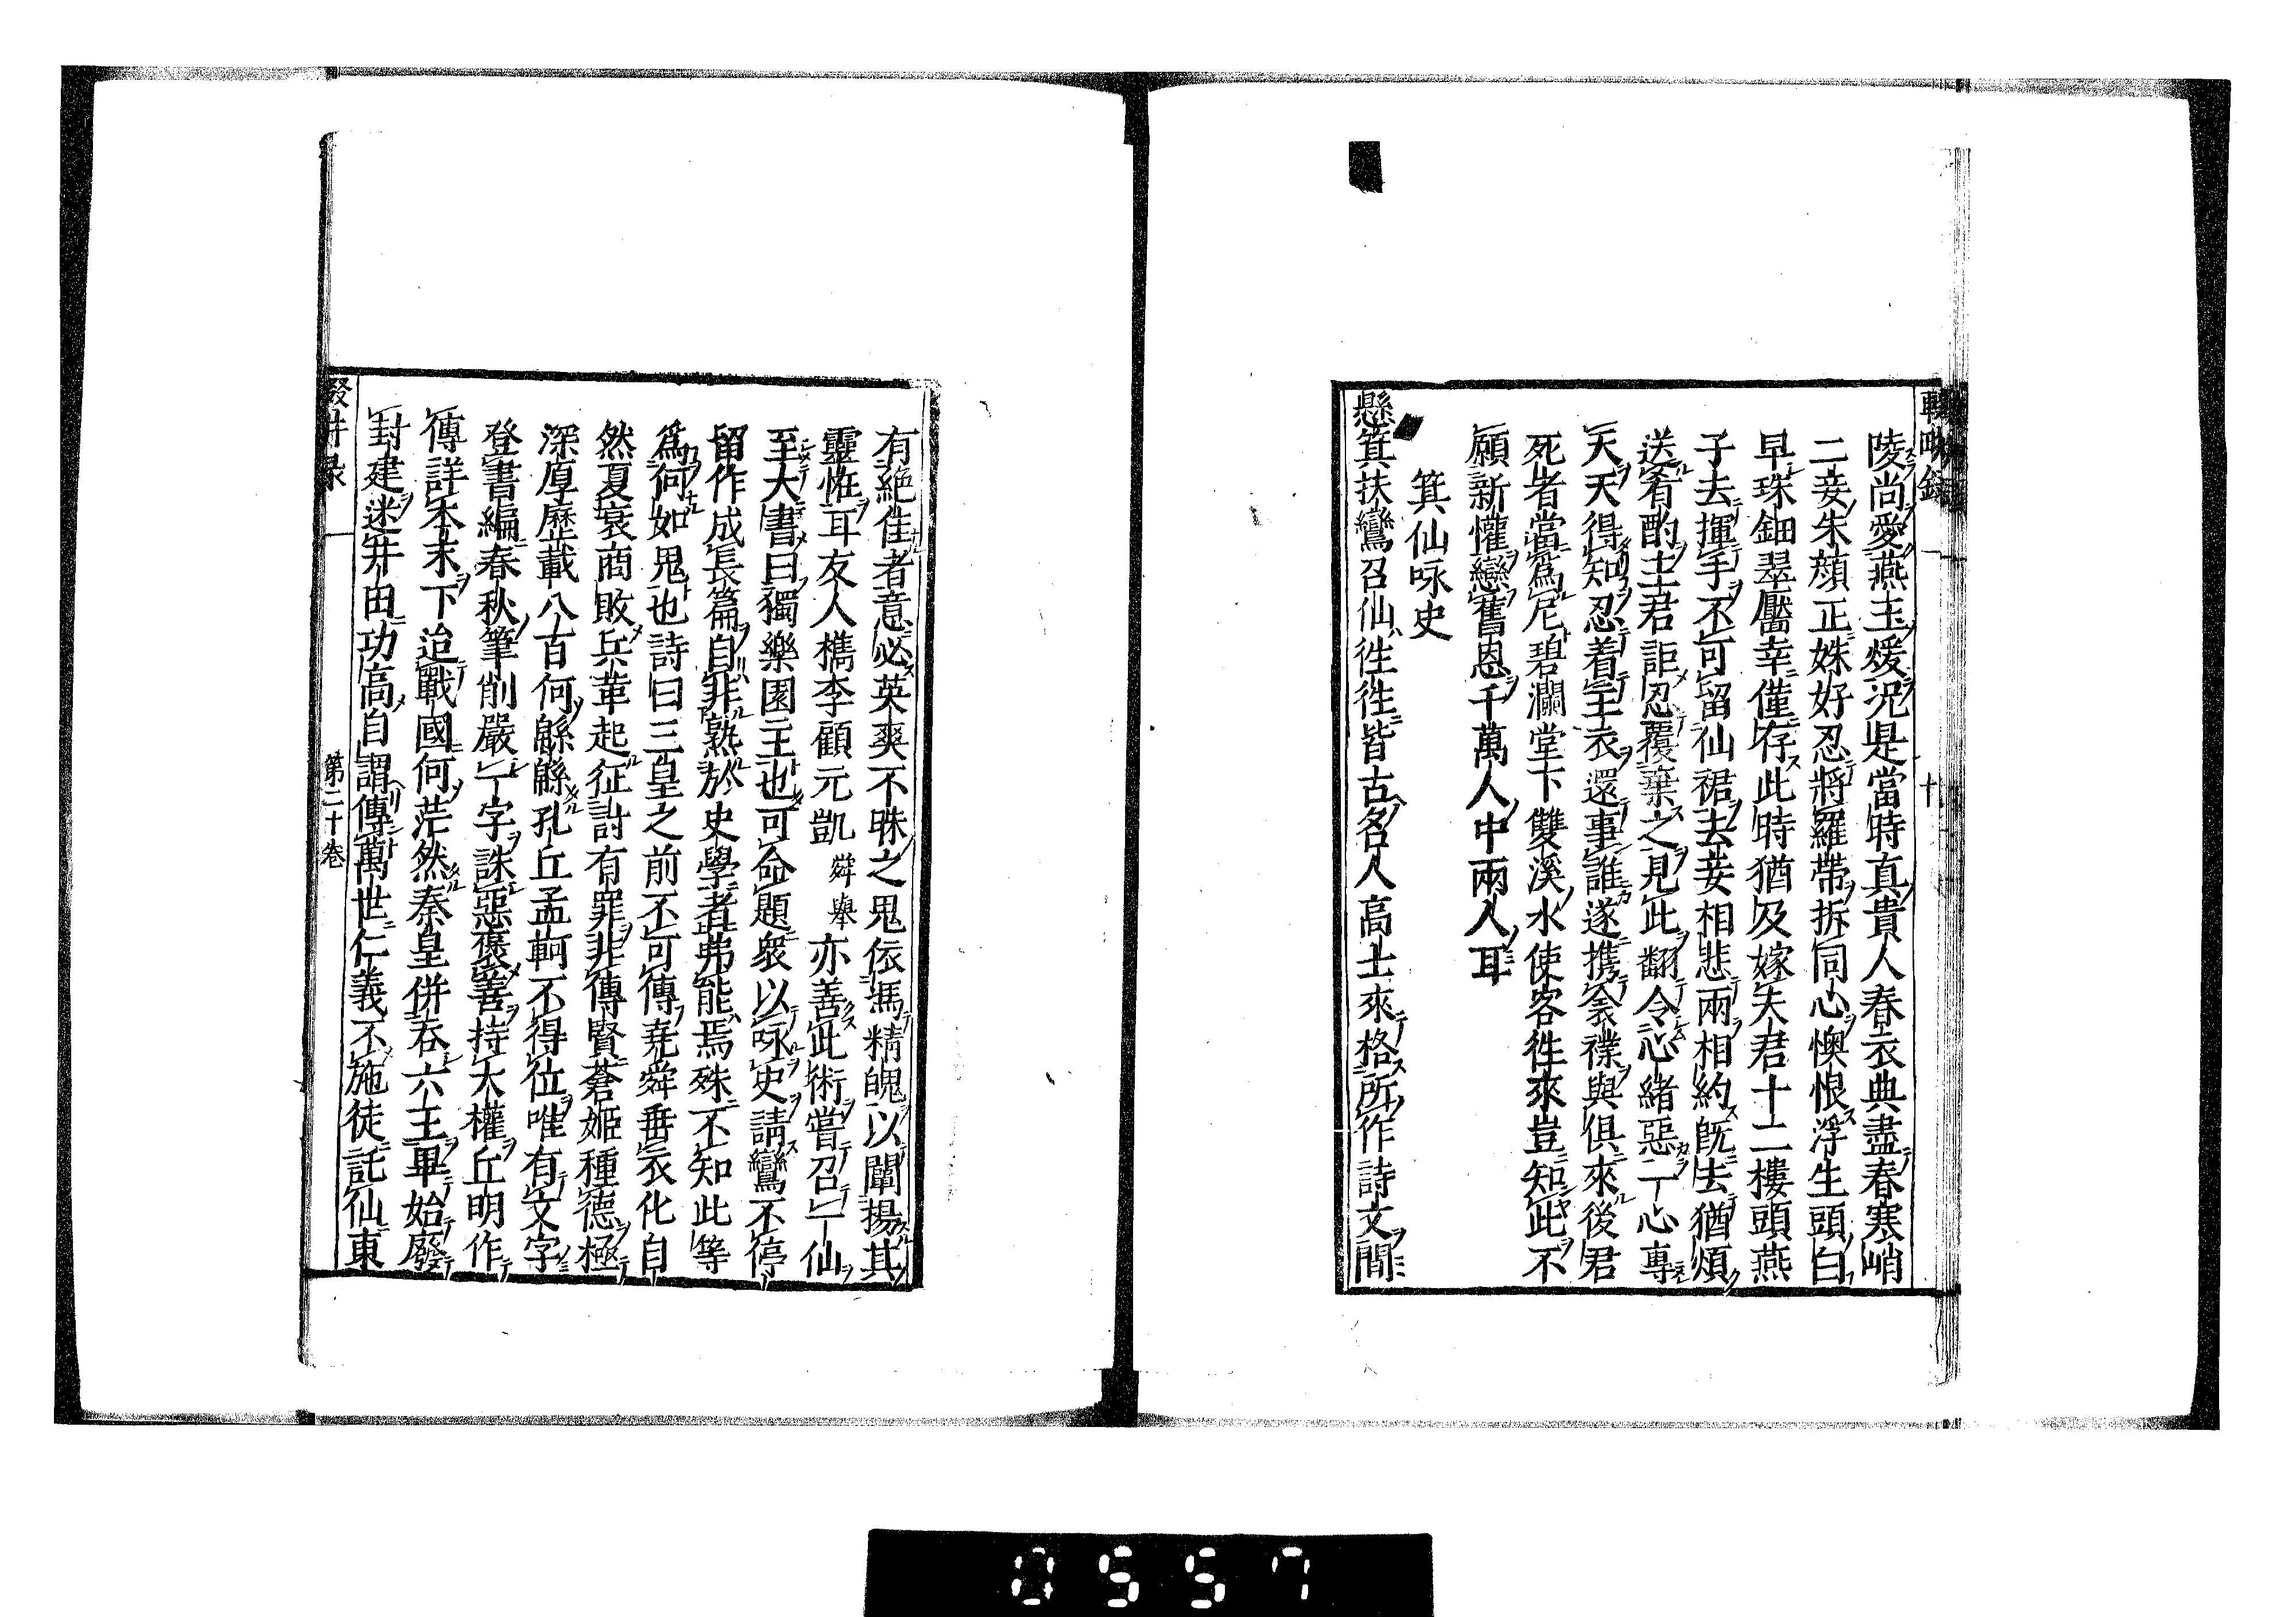 輟畊録 十
陵尚愛燕玉煖况是當時真貴人春衣典盡春寒峭
二妾朱顔正姝好忍將羅帶拆同心懊恨浮生頭白
早珠鈿翠靨幸僅存此時猶及嫁夫君十二樓頭燕
子去揮手不可留仙裾去妾相悲兩相約既去猶煩
送肴酌主君詎忍覆棄之見此翻令心緒惡一心專
天天得知忍着主衣還事誰遂携衾襆與俱來後君
死者當爲尼碧瀾堂下雙溪水使客徃來豈知此不
願新懽戀舊恩千萬人中兩人耳
箕仙咏史
懸箕扶鸞召仙徃徃皆古名人高士來格所作詩文間
有絶佳者意必英爽不昧之鬼依馮精魄以闡揚其
靈恠耳友人檇李顧元凱舜舉亦善此術嘗召一仙
至大書曰獨樂園主也可命題衆以咏史請鸞不停
留作成長篇自非熟於史學者弗能焉殊不知此等
爲何如鬼也詩曰三皇之前不可傳堯舜垂衣化自
然夏衰商敗兵革起征討有罪非傳賢蒼姬種德極
深厚歷載八百何緜緜孔丘孟軻不得位唯有文字
登書編春秋筆削嚴一字誅惡褒善持大權丘明作
傳詳本末下迨戰國何茫然秦皇併吞六王畢始廢
封建迷井田功高自謂傳萬世仁義不施徒託仙東
輟畊录 第二十卷
0557